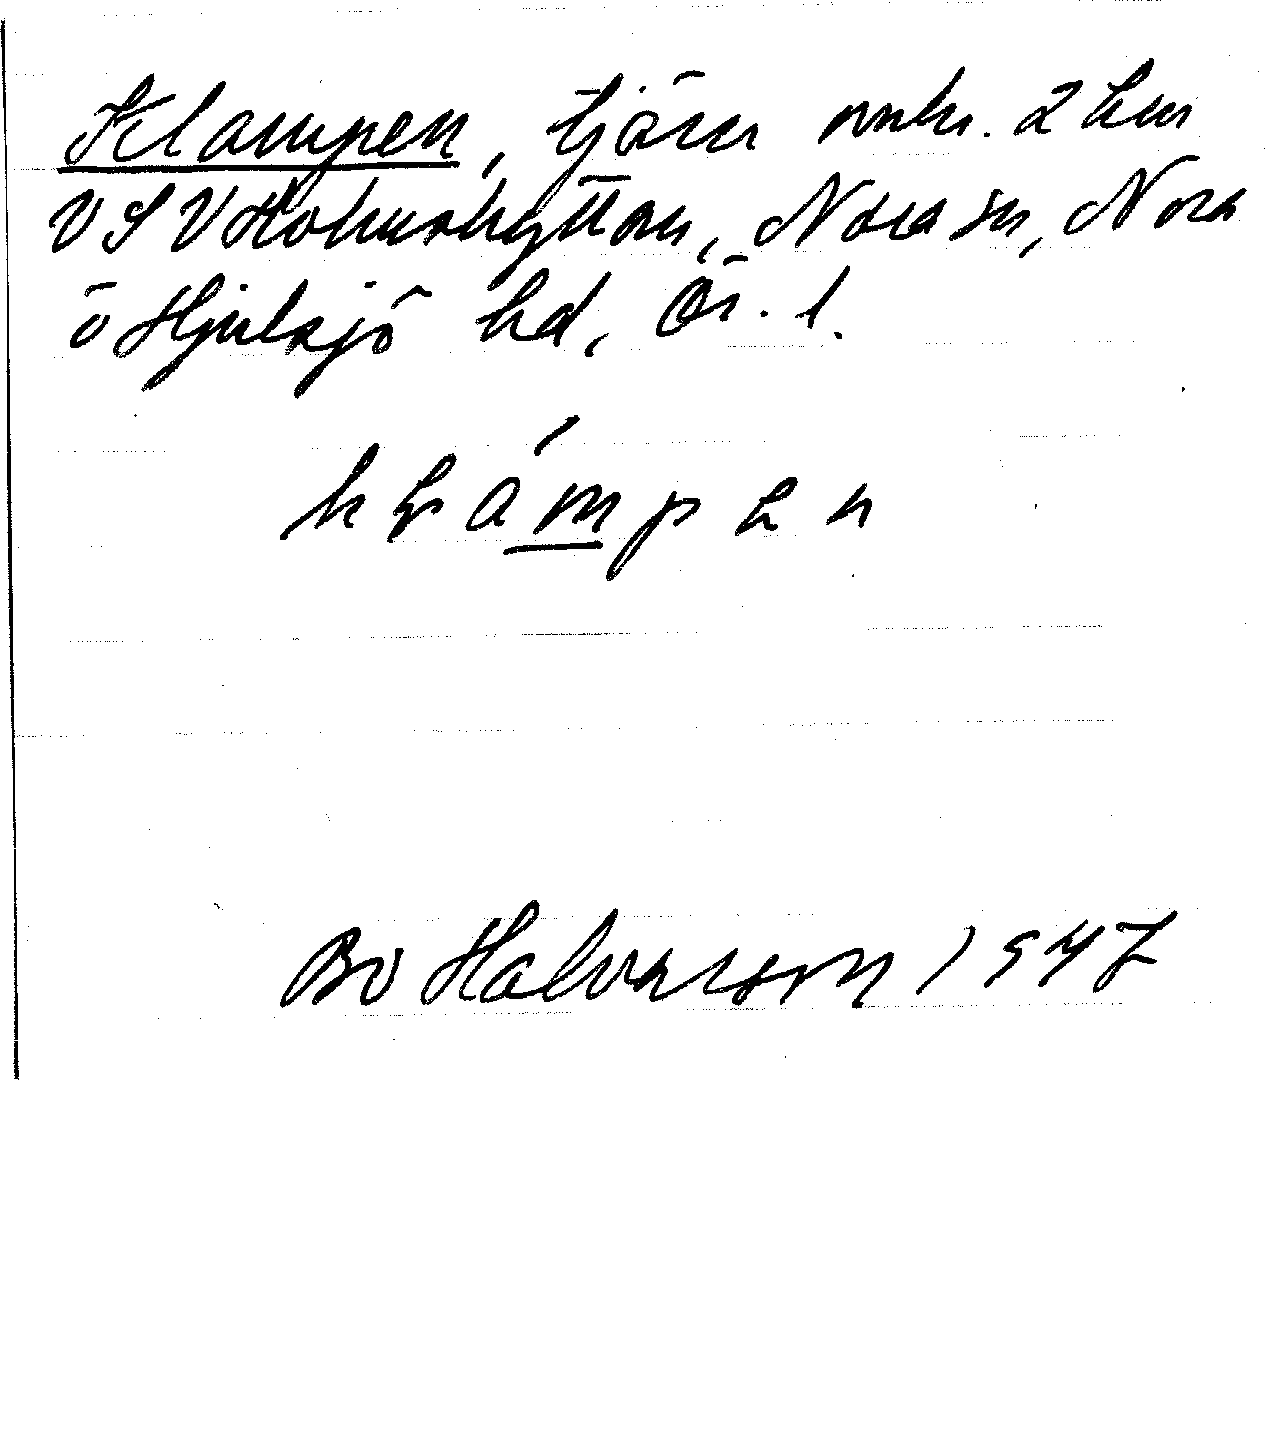 Klampen, tjärn omkr. 2 km
VSV Holmshyttan, Nora sn, Nora
o Hjulsjö hd, Ör. l.
klámpen
Bo Halvarson 1947